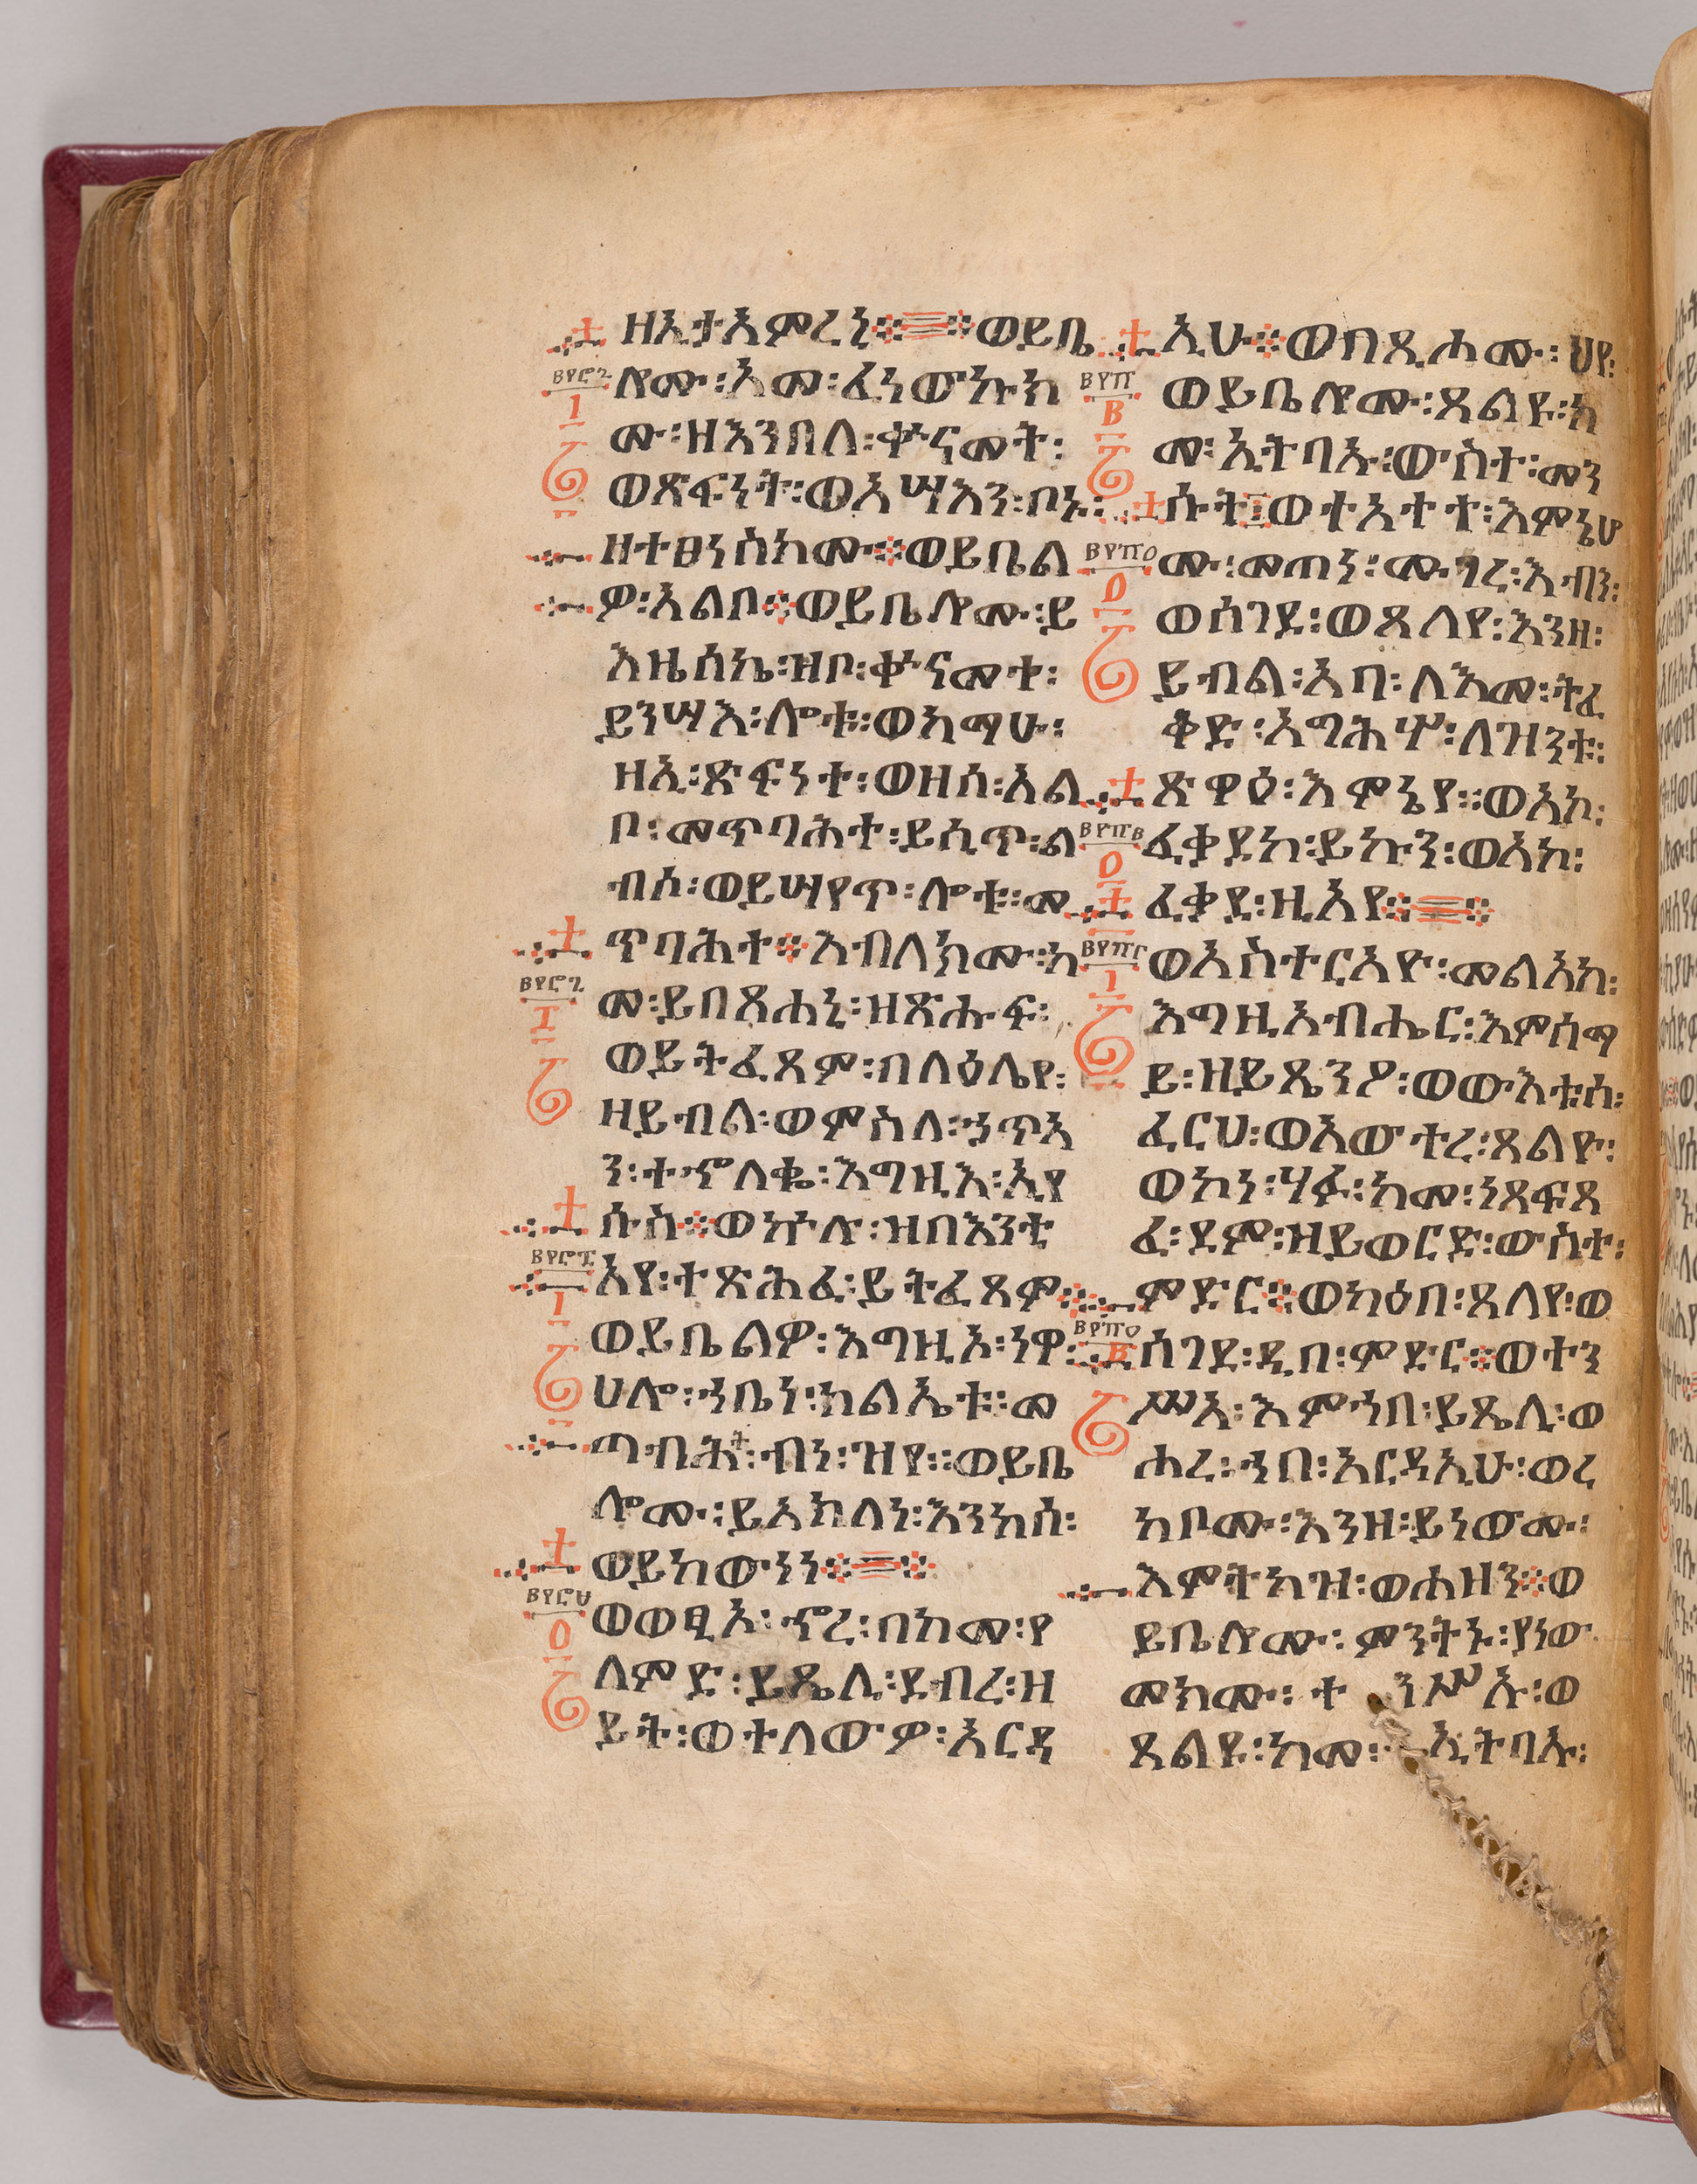 ዘኢታአምረኒ፨ ወይቤ
ሎሙ፡አመ፡ፈነውኩክ
ሙ፡ዘእንበለ፡ቍናመት፡
ወጽፍነት፡ወአሣእን፡ቦኑ፡
ዘተፀነስክሙ፨ወይቤል
ዎ፡አልቦ፨ወይቤሎሙ፡ይ
እዜሰኬ፡ዝቦ፡ቍናመተ፡
ይንሣእ፡ሎቱ፡ወከማሁ፡
ዘኒ፡ጽፍነተ፡ወዘሰ፡አል
ቦ፡መጥባሕተ፡ይሲጥ፡ል
ብሰ፡ወይሣየጥ፡ሎቱ፡መ
ጥባሕተ፨እብለክሙ፡ከ
መ፡ይበጽሐኒ፡ዘጽሑፍ፡
ወይትፌጸም፡በላዕሌየ፡
ዘይብል፡ወምስለ፡ኃጥኣ
ን፡ተኆለቈ፡እግዚእ፡ኢየ
ሱስ፨ወኵሉ፡ዝበእንቲ
አየ፡ተጽሕፈ፡ይትፌጸም፨
ወይቤልዎ፡እግዚኦ፡ነዋ፡
ሀሎ፡ኀቤነ፡ክልኤቱ፡መ
ጣብሕት፡ብነ፡ዝየ፡፡ወይቤ
ሎሙ፡ይአክለነ፡እንከሰ፡
ወይከውነነ፨
ወወፂኦ፡ኆረ፡በከመ፡የ
ለምድ፡ይጼሊ፡ደብረ፡ዘ
ይት፡ወተለውዎ፡አርዳ
ኢሁ፨ወበጺሖሙ፡ህየ፡
ወይቤሎሙ፡ጸልዩ፡ከ
መ፡ኢትባኡ፡ውስተ፡መን
ሱት፨ወተአተተ፡እምኔሆ
ሙ፡መጠነ፡ሙጋረ፡እብን፡
ወሰገደ፡ወጸለየ፡እንዘ፡
ይብል፡አባ፡ለእመ፡ትፈ
ቅድ፡አግሕሦ፡ለዝንቱ፡
ጽዋዕ፡እምኔየ፡፡ወአኮ፡
ፈቃደከ፡ይኩን፡ወአኮ፡
ፈቃደ፡ዚአየ፨
ወአስተርአዮ፡መልአከ፡
እግዚአብሔር፡እምሰማ
ይ፡ዘይጼንዖ፡ወውእቱሰ፡
ፈርሀ፡ወአውተረ፡ጸልዮ፡
ወኮነ፡ሃፉ፡ከመ፡ነጸፍጸ
ፈ፡ደም፡ዘይወርድ፡ውስተ፡
ምድር፨ወካዕበ፡ጸለየ፡ወ
ሰገደ፡ዲበ፡ምድር፨ወተን
ሥአ፡እምኀበ፡ይጼሊ፡ወ
ሖረ፡ኀበ፡አርዳኢሁ፡ወረ
ከቦሙ፡እንዘ፡ይነውሙ፡
እምትካዝ፡ወሐዘን፨ወ
ይቤሎሙ፡ምንትኑ፡ያነው
መክሙ፡ተንሥኡ፡ወ
ጸልዩ፡ከመ፡ኢትባኡ፡